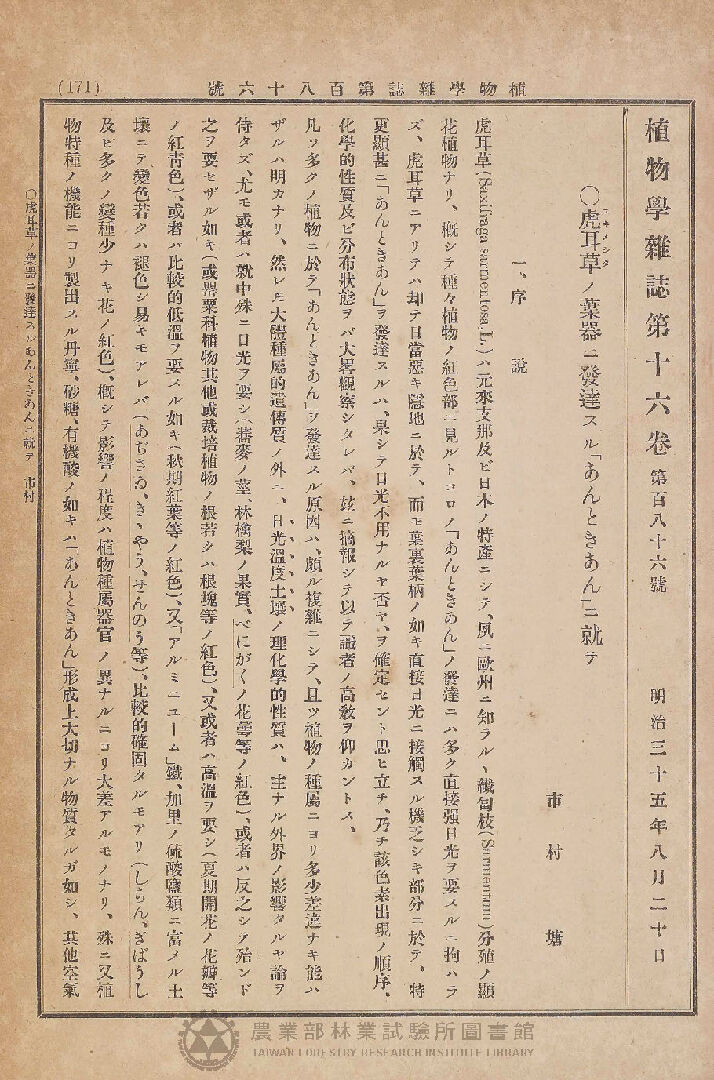 植物學雜誌第百八十六號
(171)
植物學雜誌第十六卷 第百八十六號 明治三十五年八月二十日
○虎耳草ノ葉器ニ發達スル「あんとときあん」ニ就テ
ユキノシタ
市村塘
一、序說
虎耳草(Saxifraga sarmentosa L.)ハ元來支那及ビ日本ノ特產ニシテ、夙ニ歐州ニ知ラル、纎匐枝(Sarmentum)分殖ノ顯
花植物ナリ、槪シテ種々植物ノ紅色部ニ見ルトコロノ「あんとときあん」ノ發達ニハ多ク直接强日光ヲ要スルニ拘ハラ
ズ、虎耳草ニアリテハ却テ日當惡キ隱地ニ於テ、而モ葉裏葉柄ノ如キ直接日光ニ接觸スル機乏シキ部分ニ於テ、特ニ
更顯甚ニ「あんとときあん」ヲ發達スルハ、果シテ日光不用ナルヤ否ヤ、ヲ確定セント思ヒ立チ、乃チ該色素出現ノ順序、
化學的性質及ビ分布狀態ヲバ大畧觀察シタレバ、玆ニ摘報シテ以テ識者ノ高敎ヲ仰カントス、
凡ソ多クノ植物ニ於テ「あんとときあん」ヲ發達スル原因ハ、頗ル複雜ニシテ、且ツ植物ノ種屬ニヨリ多少差違ナキ能ハ
ザルハ明カナリ、然レ𪜈大體種屬的遺傳質ノ外ニ、日光溫度土壤ノ理化學的性質ハ、主ナル外界ノ影響タルヤ論ヲ
待タズ、尤モ或者ハ就中殊ニ日光ヲ要シ(蕎麥ノ莖、林檎梨ノ果實、べにがくノ花蕚等ノ紅色)、或者ハ反之シテ殆ンド
之ヲ要セザル如キ(或罌粟科植物其他或栽培植物ノ根若クハ根塊等ノ紅色)、又或者ハ高溫ヲ要シ(夏期開花ノ花瓣等
ノ紅靑色)、或者ハ比較的低溫ヲ要スル如キ(秋期紅葉等ノ紅色)、又「アルミニユーム」鐵、加里ノ硫酸鹽類ニ富メル土
壤ニテ變色若クハ褪色シ易キモアレバ(あぢさゐ、きゝやう、せんのう等)、比較的確固タルモアリ(しらん、ぎばうし
及ヒ多クノ變種少ナキ花ノ紅色)、槪シテ影響ノ程度ハ植物種屬器官ノ異ナルニヨリ大差アルモノナリ、殊ニ又植
物特種ノ機能ニヨリ製出スル丹寧、砂糖、有機酸ノ如キハ「あんとときあん」形成上大切ナル物質タルガ如シ、其他空氣
○虎耳草ノ葉器ニ發達スルあんとときあんニ就テ 市村
農業部林業試驗所圖書館
TAIWAN FORESTRY RESEARCH INSTITUTE LIBRARY